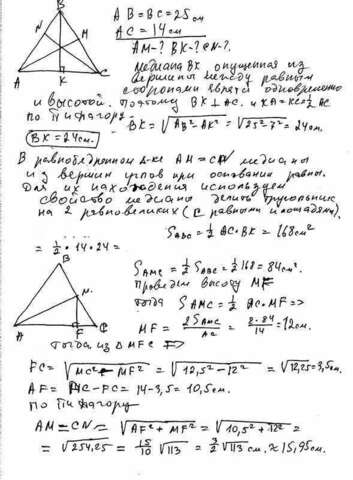 B
N
M
A
K
C
AB=BC=25см
AC=14см
AM-? BK-? CN-?
Медиана BK опущенная из
вершины между равными
сторонами является одновременно
и высотой. Поэтому BK⊥AC. и KA=KC=½AC
По Пифагору
BK=√AB²-AK² = √25²-7² = 24см.
BK=24см.
В равнобедренном Δ-ке AM=CN медианы
из вершин углов при основании равны.
Для их нахождения используем
свойство медианы делить треугольник
на 2 равновеликих (с равными площадями).
S_ABC = ½ AC·BK = 168см²
= ½·14·24 =
B
M
A
F
C
S_AMC = ½ S_ABC = ½ 168 = 84см².
Проведем высоту MF
тогда S_AMC = ½ AC·MF =>
MF = 2S_AMC/AC = 2·84/14 = 12см.
Тогда из ΔMFC =>
FC = √MC²-MF² = √12,5²-12² = √12,25 = 3,5см.
AF = AC-FC = 14-3,5 = 10,5см.
По Пифагору
AM=CN = √AF²+MF² = √10,5²+12² =
= √254,25 = 15/10 √113 = 3/2 √113 см. ≈ 15,95см.